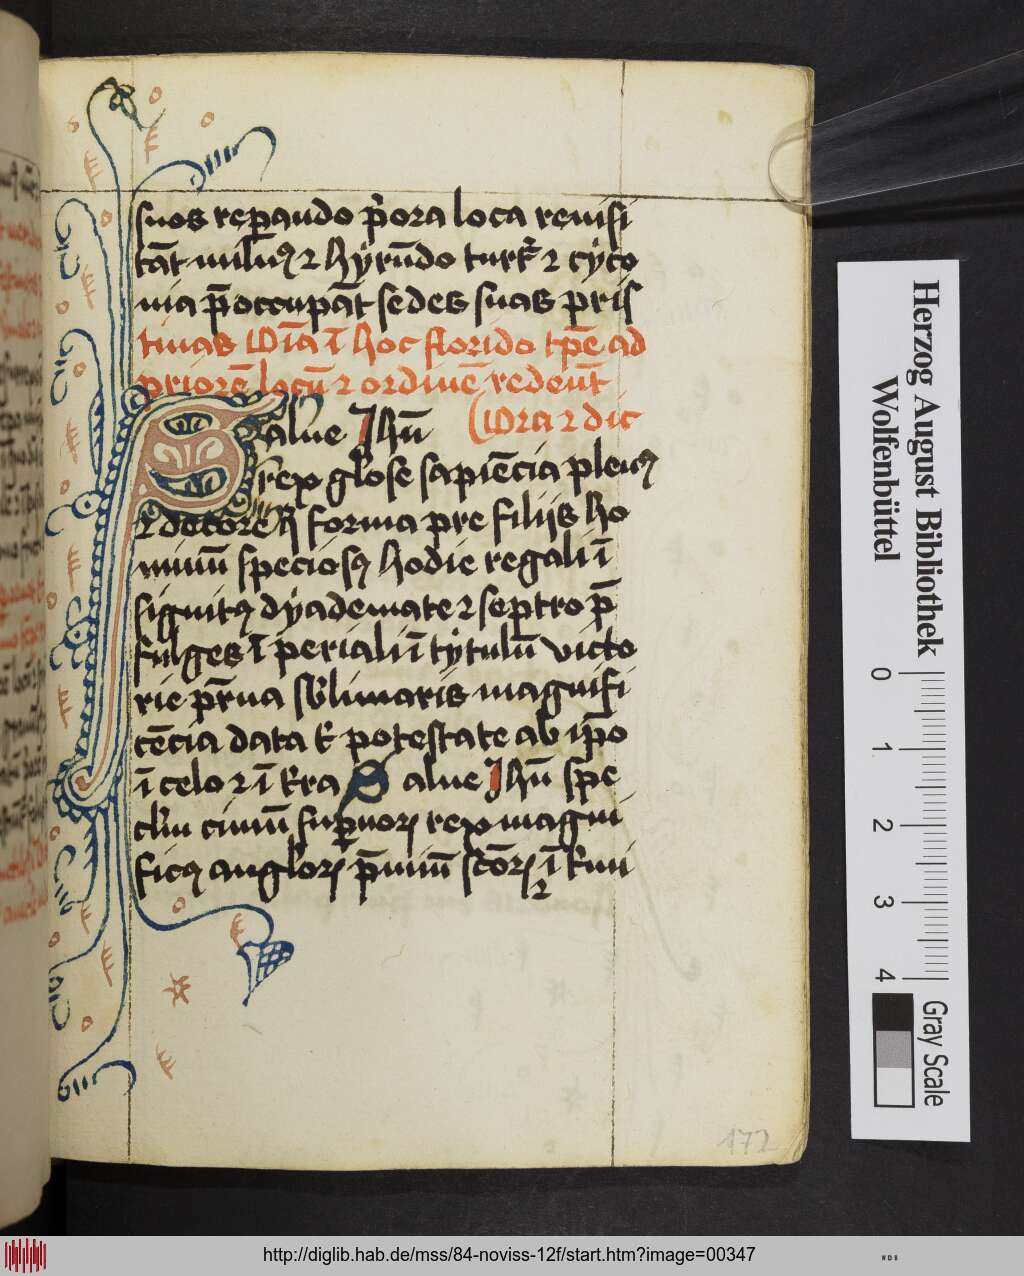 suos reꝑando p̉ora loca reuisi
tāt miluꝯ ⁊ hyrūdo turtꝛ̉ ⁊ cyco
nia p̄occupāt sedes suas pris
tinas Oīa ī hoc florido tꝑe ad
priorē locū ⁊ ordinē redeūt
Salue Jhū (Ora ⁊ dic
rex glose sapiēcia plenꝯ
⁊ docōre forma pre filijs ho
minū speciosꝯ hodie regali ī
signitꝯ dyademate ⁊ septro p̄
fulges īperiali ī tytulū victo
rie magnifi
cēcia data potestate ab ip̄o
ī celo ⁊ ī tꝛ̉ra Salue Jhū spe
ciuiū suꝑnorꝝ rex magni
ficꝯ anglorꝝ p̄miū scōrꝝ ī
172
Herzog August Bibliothek
Wolfenbüttel
0 1 2 3 4
Gray Scale
http://diglib.hab.de/mss/84-noviss-12f/start.htm?image=00347